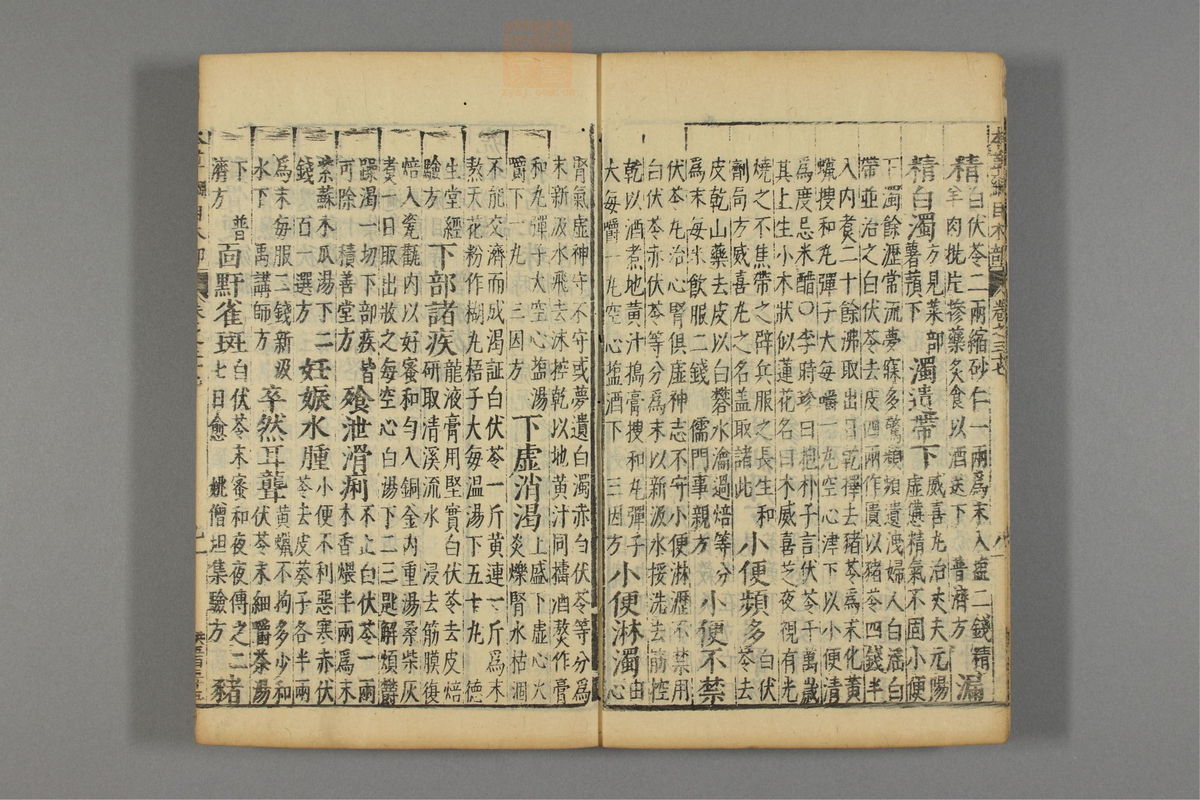 本草綱目木部 卷之三十七
精白伏苓二兩縮砂仁一兩爲末入鹽二錢精
羊肉批片摻藥炙食以酒送下 普濟方 漏
精白濁方見菜部薯蕷下 濁遺帶下威喜丸治丈夫元陽虛憊精氣不固小便
下濁餘瀝常流夢寐多驚頻頻遺洩婦人白淫白
帶並治之白伏苓去皮四兩作匱以猪苓四錢半
入內煮二十餘沸取出日乾擇去猪苓爲末化黃
蠟搜和丸彈子大每嚼一丸空心津下以小便清
爲度忌米醋〇李時珍曰抱朴子言伏苓千萬歲
其上生小木狀似蓮花名曰木威喜芝夜視有光
燒之不焦帶之辟兵服之長生和
劑局方威喜丸之名盖取諸此 小便頻多白伏苓去
皮乾山藥去皮以白礬水瀹過焙等分
爲末每米飲服二錢 儒門事親方 小便不禁
伏苓丸治心腎俱虛神志不守小便淋瀝不禁用
白伏苓赤伏苓等分爲末以新汲水挼洗去筋控
乾以酒煮地黃汁搗膏搜和丸彈子
大每嚼一丸空心鹽酒下 三因方 小便淋濁由心
腎氣虛神守不守或夢遺白濁赤白伏苓等分爲
末新汲水飛去沫控乾以地黃汁同櫧酒熬作膏
和丸彈子大空心鹽湯
嚼下一丸 三因方 下虛消渴上盛下虛心火炎爍腎水枯涸
不能交濟而成渴証白伏苓一斤黃連一斤爲末
熬天花粉作糊丸梧子大每温湯下五十丸 德
生堂經
驗方 下部諸疾龍液膏用堅實白伏苓去皮焙研取清溪流水浸去筋膜復
焙入瓷罐內以好蜜和勻入銅釜內重湯桑柴灰
煮一日取出收之每空心白湯下二三匙解煩鬱
躁渴一切下部疾皆
可除 積善堂方 飧泄滑痢不止白伏苓一兩木香煨半兩爲末
紫蘇木瓜湯下二
錢 百一選方 妊娠水腫小便不利惡寒赤伏苓去皮葵子各半兩
爲末每服二錢新汲
水下 禹講師方 卒然耳聾黃蠟不拘多少和伏苓末細嚼茶湯
下 普
濟方 面䵟雀斑白伏苓末蜜和夜夜傅之二七日愈 姚僧坦集驗方 猪